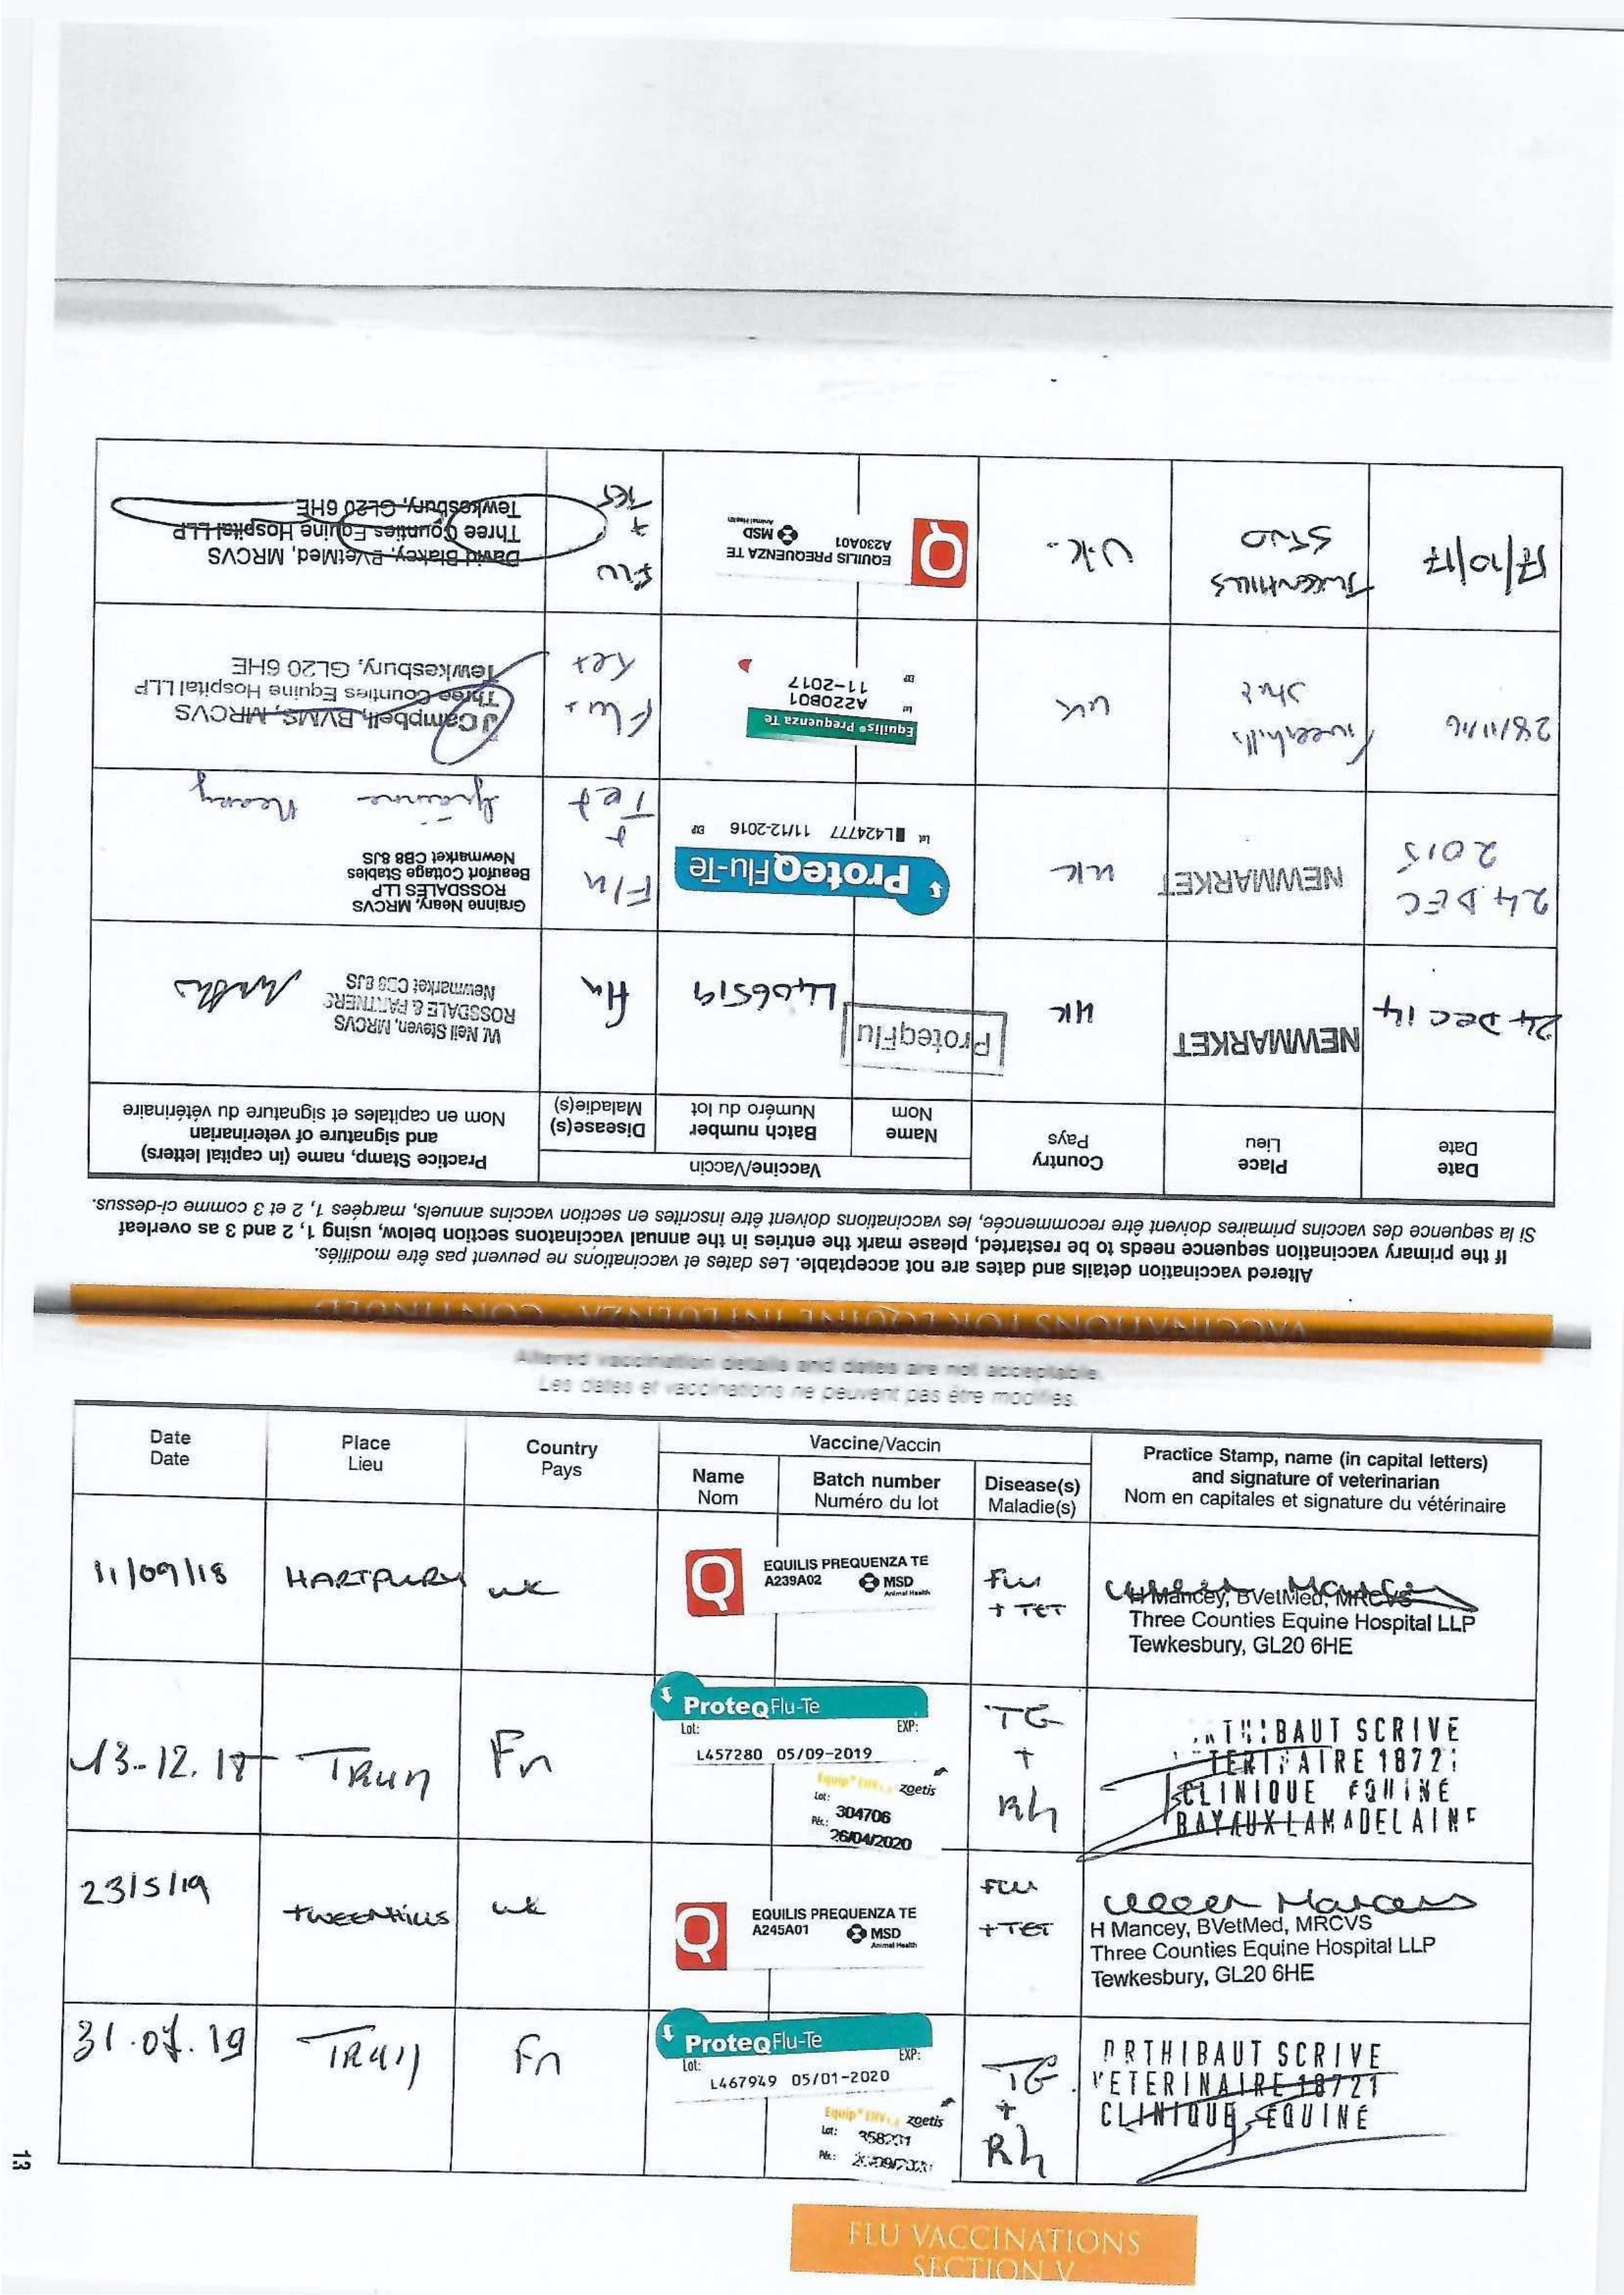 VACCINATIONS FOR EQUINE INFLUENZA - CONTINUED
Altered vaccination details and dates are not acceptable. Les dates et vaccinations ne peuvent pas être modifiés.
If the primary vaccination sequence needs to be restarted, please mark the entries in the annual vaccinatons section below, using 1, 2 and 3 as overleaf
Si la sequence des vaccins primaires doivent être recommencée, les vaccinations doivent être inscrites en section vaccins annuels, marquées 1, 2 et 3 comme ci-dessus.
Date
Date
Place
Lieu
Country
Pays
Vaccine/Vaccin
Name
Nom
Batch number
Numéro du lot
Disease(s)
Maladie(s)
Practice Stamp, name (in capital letters)
and signature of veterinarian
Nom en capitales et signature du vétérinaire
24 DEC 14
NEWMARKET
UK
ProteqFlu
L406519
flu
W. Neil Steven, MRCVS
ROSSDALE & PARTNERS
Newmarket CB8 8JS
24 DEC
2015
NEWMARKET
UK
ProteqFlu-Te
Lot L424777 11/12-2016 EXP
Flu
+
Tet
Grainne Neary, MRCVS
ROSSDALES LLP
Beaufort Cottage Stables
Newmarket CB8 8JS
Grainne Neary
28/11/16
Tweenhills
Stud
UK
Equilis® Prequenza Te
Lot A220B01
EXP 11-2017
Flu +
Tet
J Campbell, BVMS, MRCVS
Three Counties Equine Hospital LLP
Tewkesbury, GL20 6HE
17/10/17
TWEENHILLS
STUD
U.K.
Q
EQUILIS PREQUENZA TE
A230A01 MSD
Animal Health
FLU
+
TET
David Blakey, BVetMed, MRCVS
Three Counties Equine Hospital LLP
Tewkesbury, GL20 6HE
Altered vaccination details and dates are not acceptable.
Les dates et vaccinations ne peuvent pas être modifiés.
Date
Date
Place
Lieu
Country
Pays
Vaccine/Vaccin
Name
Nom
Batch number
Numéro du lot
Disease(s)
Maladie(s)
Practice Stamp, name (in capital letters)
and signature of veterinarian
Nom en capitales et signature du vétérinaire
11/09/18
HARTPURY
UK
Q
EQUILIS PREQUENZA TE
A239A02 MSD
Animal Health
FLU
+ TET
H Mancey, BVetMed, MRCVS
Three Counties Equine Hospital LLP
Tewkesbury, GL20 6HE
13.12.18
TRUN
Fn
ProteqFlu-Te
Lot: EXP:
L457280 05/09-2019
zoetis
Lot: 304706
Pér.: 26/04/2020
TG
+
Rh
THIBAUT SCRIVE
CLINIQUE EQUINE
BAYAUX LAMADELAINE
23/5/19
TWEENHILLS
UK
Q
EQUILIS PREQUENZA TE
A245A01 MSD
Animal Health
FLU
+ TET
H Mancey, BVetMed, MRCVS
Three Counties Equine Hospital LLP
Tewkesbury, GL20 6HE
31.07.19
TRUN
Fn
ProteqFlu-Te
Lot: EXP:
L467949 05/01-2020
zoetis
Lot:
Pér.:
TG
+
Rh
DRTHIBAUT SCRIVE
VETERINAIRE 18721
CLINIQUE EQUINE
13
FLU VACCINATIONS
SECTION V